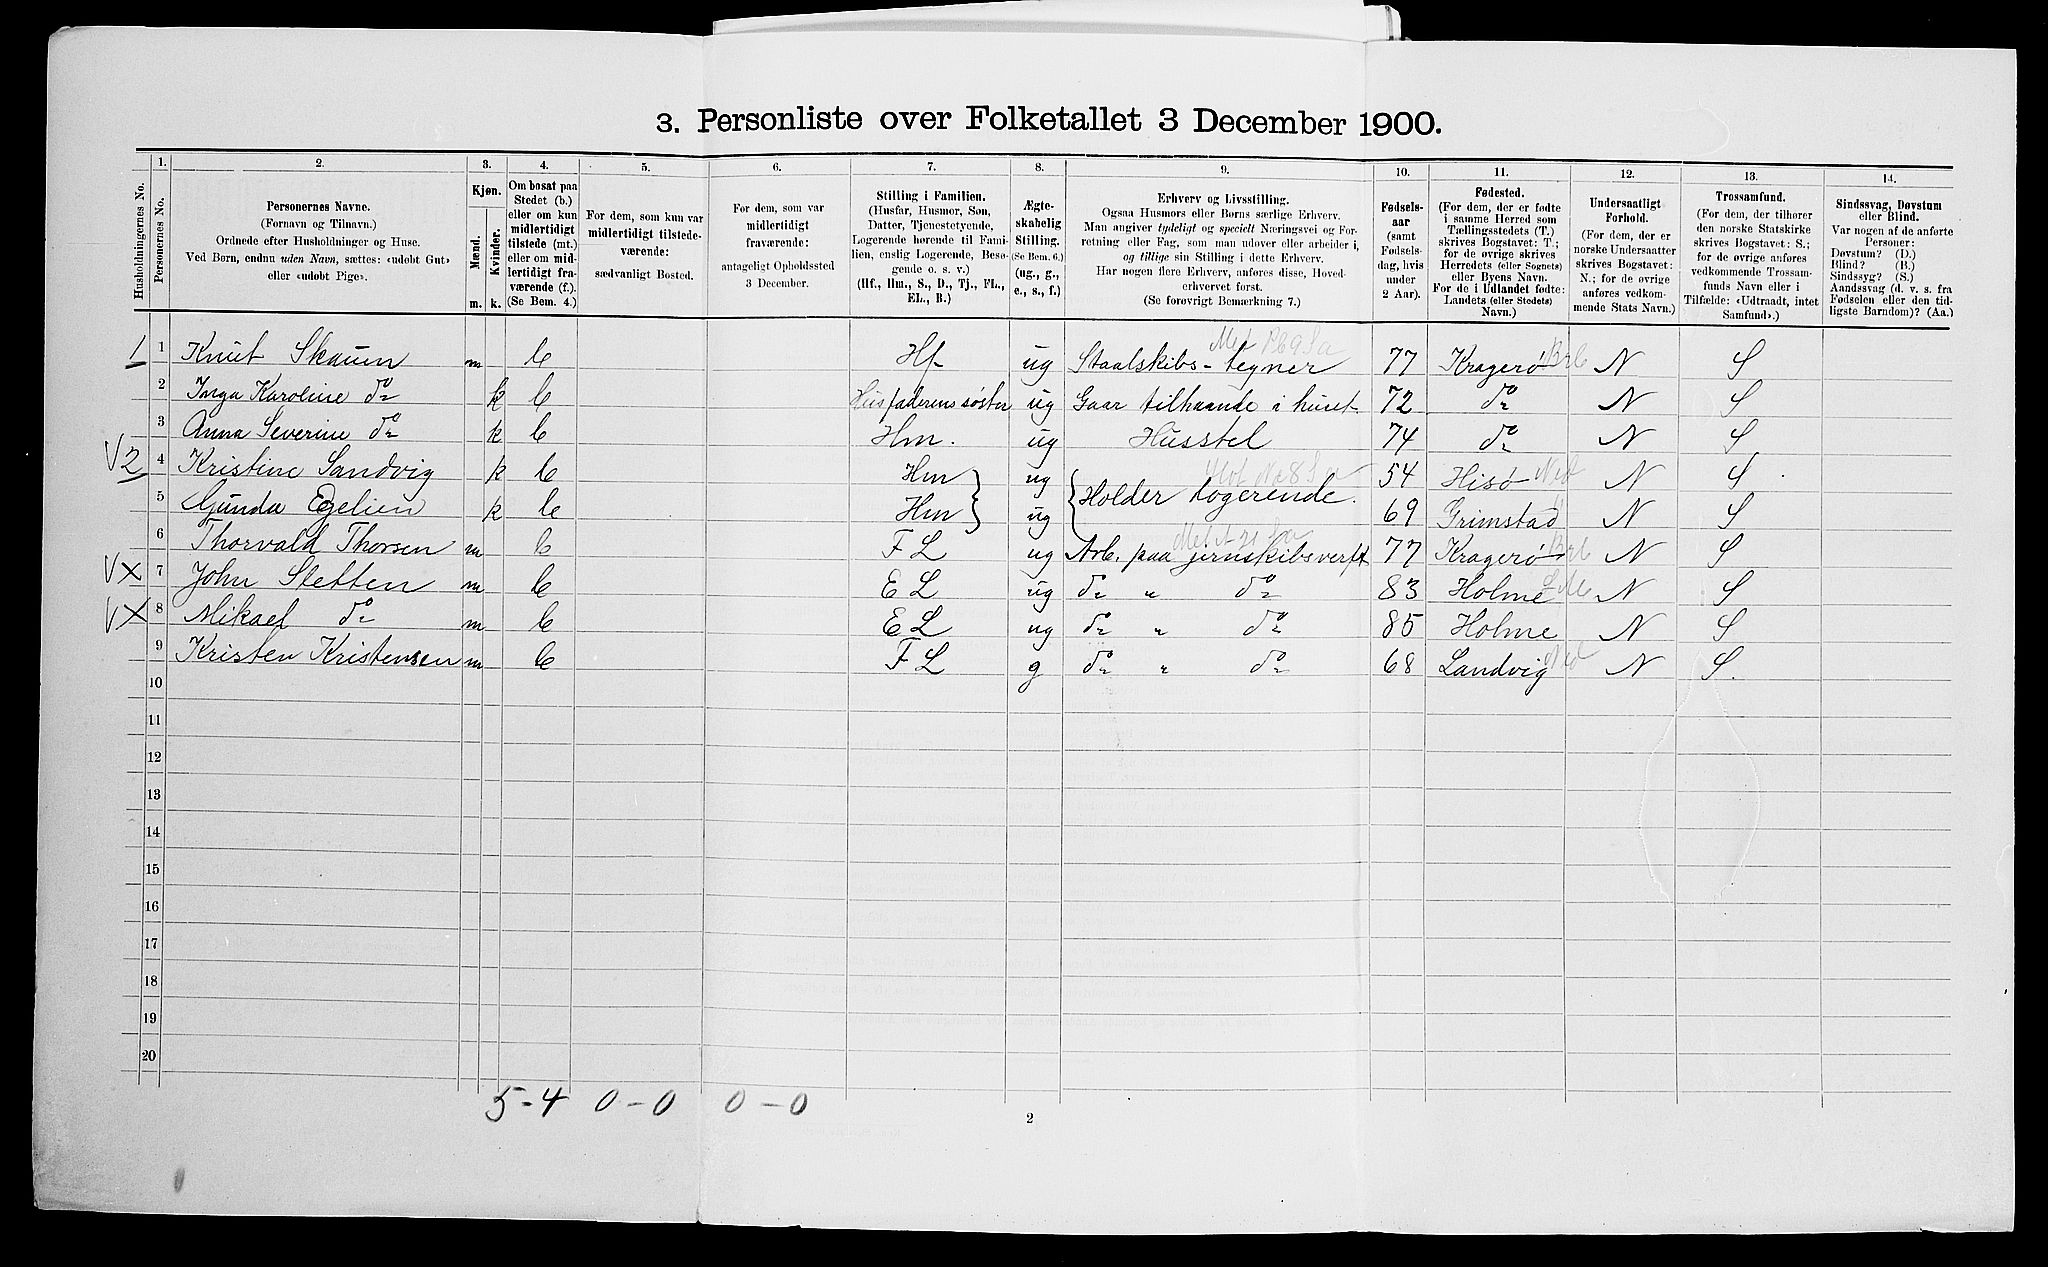 3. Personliste over Folketallet 3 December 1900.
Husholdningernes No.
1. Personernes No.
2. Personernes Navne. (Fornavn og Tilnavn.) Ordnede efter Husholdninger og Huse. Ved Børn, endnu uden Navn, sættes: «udøbt Gut» eller «udøbt Pige».
3. Kjøn. Mænd. m. Kvinder. k.
4. Om bosat paa Stedet (b.) eller om kun midlertidigt tilstede (mt.) eller om midlertidigt fraværende (f.). (Se Bem. 4.)
5. For dem, som kun var midlertidigt tilstedeværende: sædvanligt Bosted.
6. For dem, som var midlertidigt fraværende: antageligt Opholdssted 3 December.
7. Stilling i Familien. (Husfar, Husmor, Søn, Datter, Tjenestetyende, Logerende hørende til Familien, enslig Logerende, Besøgende o. s. v.) (Hf., Hm., S., D., Tj., FL., EL., B.)
8. Ægteskabelig Stilling. (Se Bem. 6.) (ug., g., e., s., f.)
9. Erhverv og Livsstilling. Ogsaa Husmors eller Børns særlige Erhverv. Man angiver tydeligt og specielt Næringsvei og Forretning eller Fag, som man udøver eller arbeider i, og tillige sin Stilling i dette Erhverv. Har nogen flere Erhverv, anføres disse, Hovederhvervet først. (Se forøvrigt Bemærkning 7.)
10. Fødselsaar (samt Fødselsdag, hvis under 2 Aar).
11. Fødested. (For dem, der er fødte i samme Herred som Tællingsstedets (T.) skrives Bogstavet: T.; for de øvrige skrives Herredets (eller Sognets) eller Byens Navn. For de i Udlandet fødte: Landets (eller Stedets) Navn.)
12. Undersaatligt Forhold. (For dem, der er norske Undersaatter skrives Bogstavet: N.; for de øvrige anføres vedkommende Stats Navn.)
13. Trossamfund. (For dem, der tilhører den norske Statskirke skrives Bogstavet: S.; for de øvrige anføres vedkommende Trossamfunds Navn eller i Tilfælde: «Udtraadt, intet Samfund».)
14. Sindssvag, Døvstum eller Blind. Var nogen af de anførte Personer: Døvstum? (D.) Blind? (B.) Sindssyg? (S.) Aandssvag (d. v. s. fra Fødselen eller den tidligste Barndom)? (Aa.)
1 1 Knut Skauen m b Hf ug Staalskibs-tegner 77 Kragerø N S
2 Inga Karoline do k b Husfaderens søster ug Gaar tilhaande i huset 72 do N S
3 Anna Severine do k b Hm. ug Husstel 74 do N S
V2 4 Kristine Sandvig k b Hm ug Holder logerende. 54 Hisø Ned N S
5 Gunda Egelien k b Hm ug 69 Grimstad N S
6 Thorvald Thorsen m b FL ug Arb. paa jernskibsverft 77 Kragerø N S
VX 7 John Sletten m b EL ug do " do 83 Holme N S
VX 8 Mikael do m b EL ug do " do 85 Holme N S
9 Kristen Kristensen m b FL g do " do 68 Landvig Ned N S.
10
11
12
13
14
15
16
17
18
19
20
5-4 0-0 0-0
2